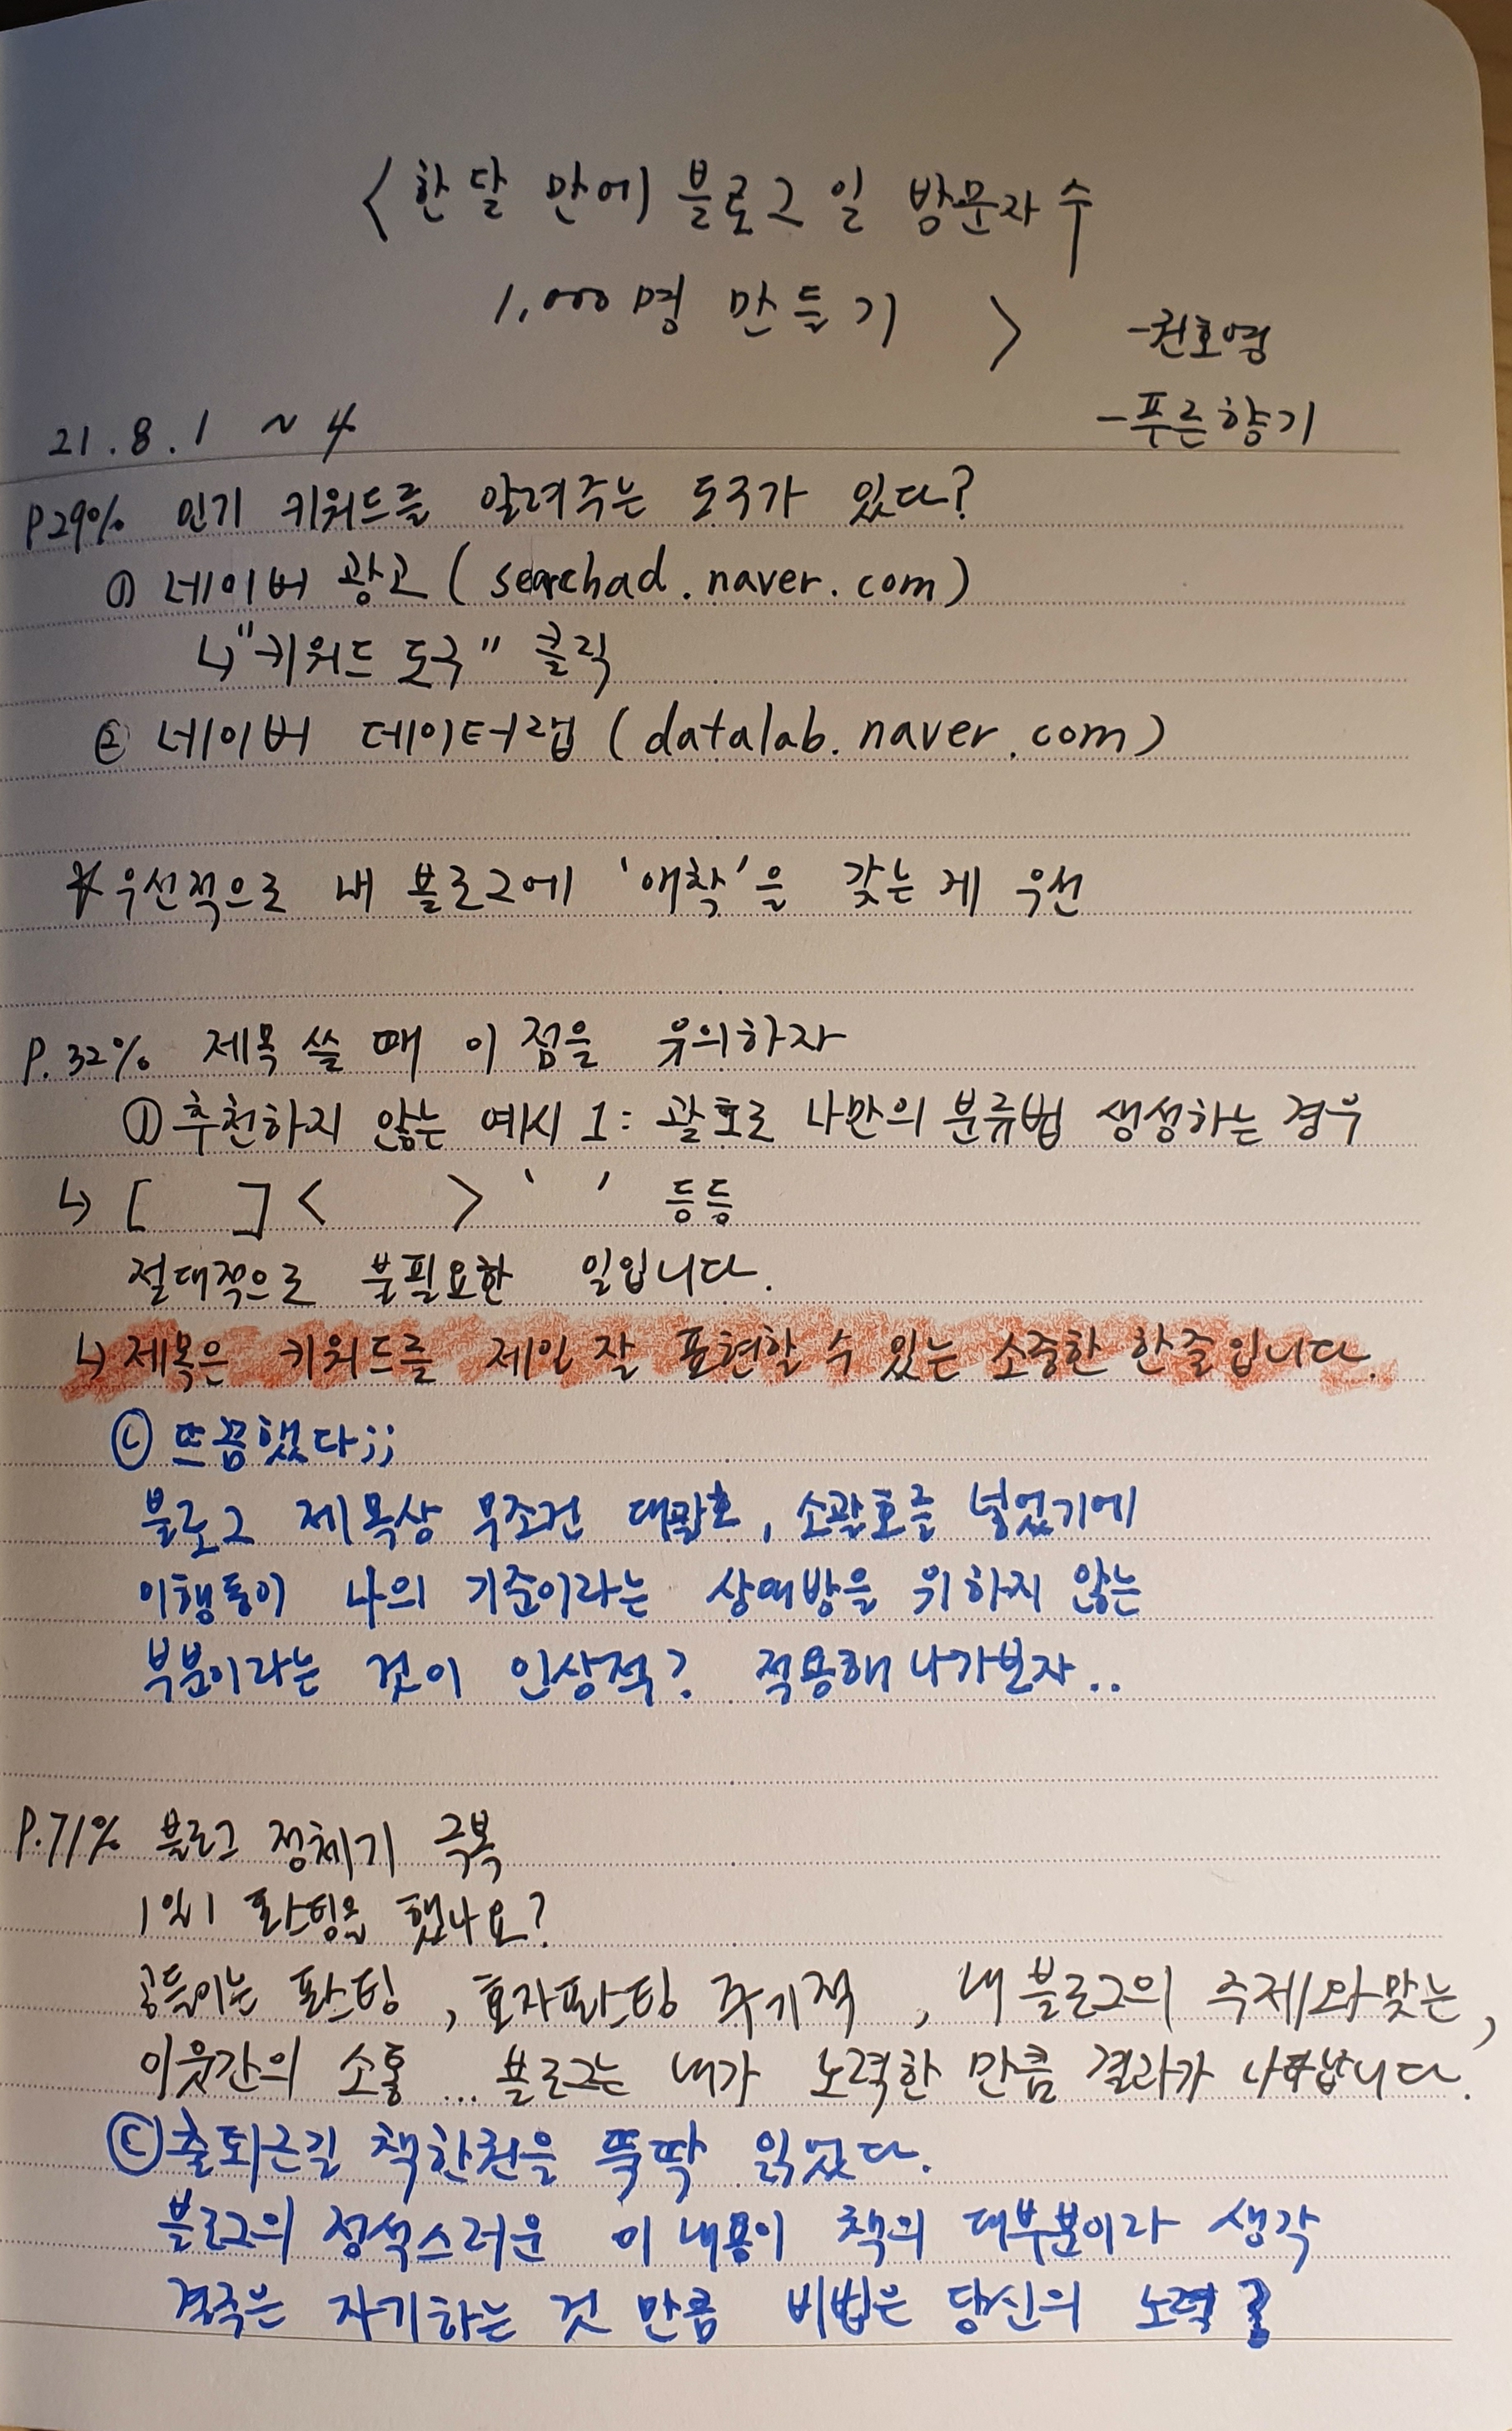 <한달 만에 블로그 일 방문자 수
1,000명 만들기>
-권호영
-푸른향기
21.8.1 ~ 4
P29% 인기 키워드를 알려주는 도구가 있다?
① 네이버 광고 (searchad.naver.com)
↳"키워드 도구" 클릭
② 네이버 데이터랩 (datalab.naver.com)
*우선적으로 내 블로그에 '애착'을 갖는 게 우선
P.32% 제목 쓸 때 이 점을 유의하자
① 추천하지 않는 예시 1: 괄호로 나만의 분류법 생성하는 경우
↳ [ ] < > ' ' 등등
절대적으로 불필요한 일입니다.
↳ 제목은 키워드를 제일 잘 표현할 수 있는 소중한 한 줄입니다.
ⓒ 뜨끔했다;;
블로그 제목상 무조건 대괄호, 소괄호를 넣었기에
이행동이 나의 기준이라는 상대방을 위하지 않는
부분이라는 것이 인상적? 적용해 나가보자..
P.71% 블로그 정체기 극복
1일1 포스팅을 했나요?
공들이는 포스팅, 효자포스팅 주기적, 내 블로그의 주제와 맞는,
이웃간의 소통... 블로그는 내가 노력한 만큼 결과가 나타납니다.
ⓒ 출퇴근길 책한권을 뚝딱 읽었다.
블로그의 정석스러운 이 내용이 책의 대부분이라 생각
결국은 자기하는 것 만큼 비법은 당신의 노력?